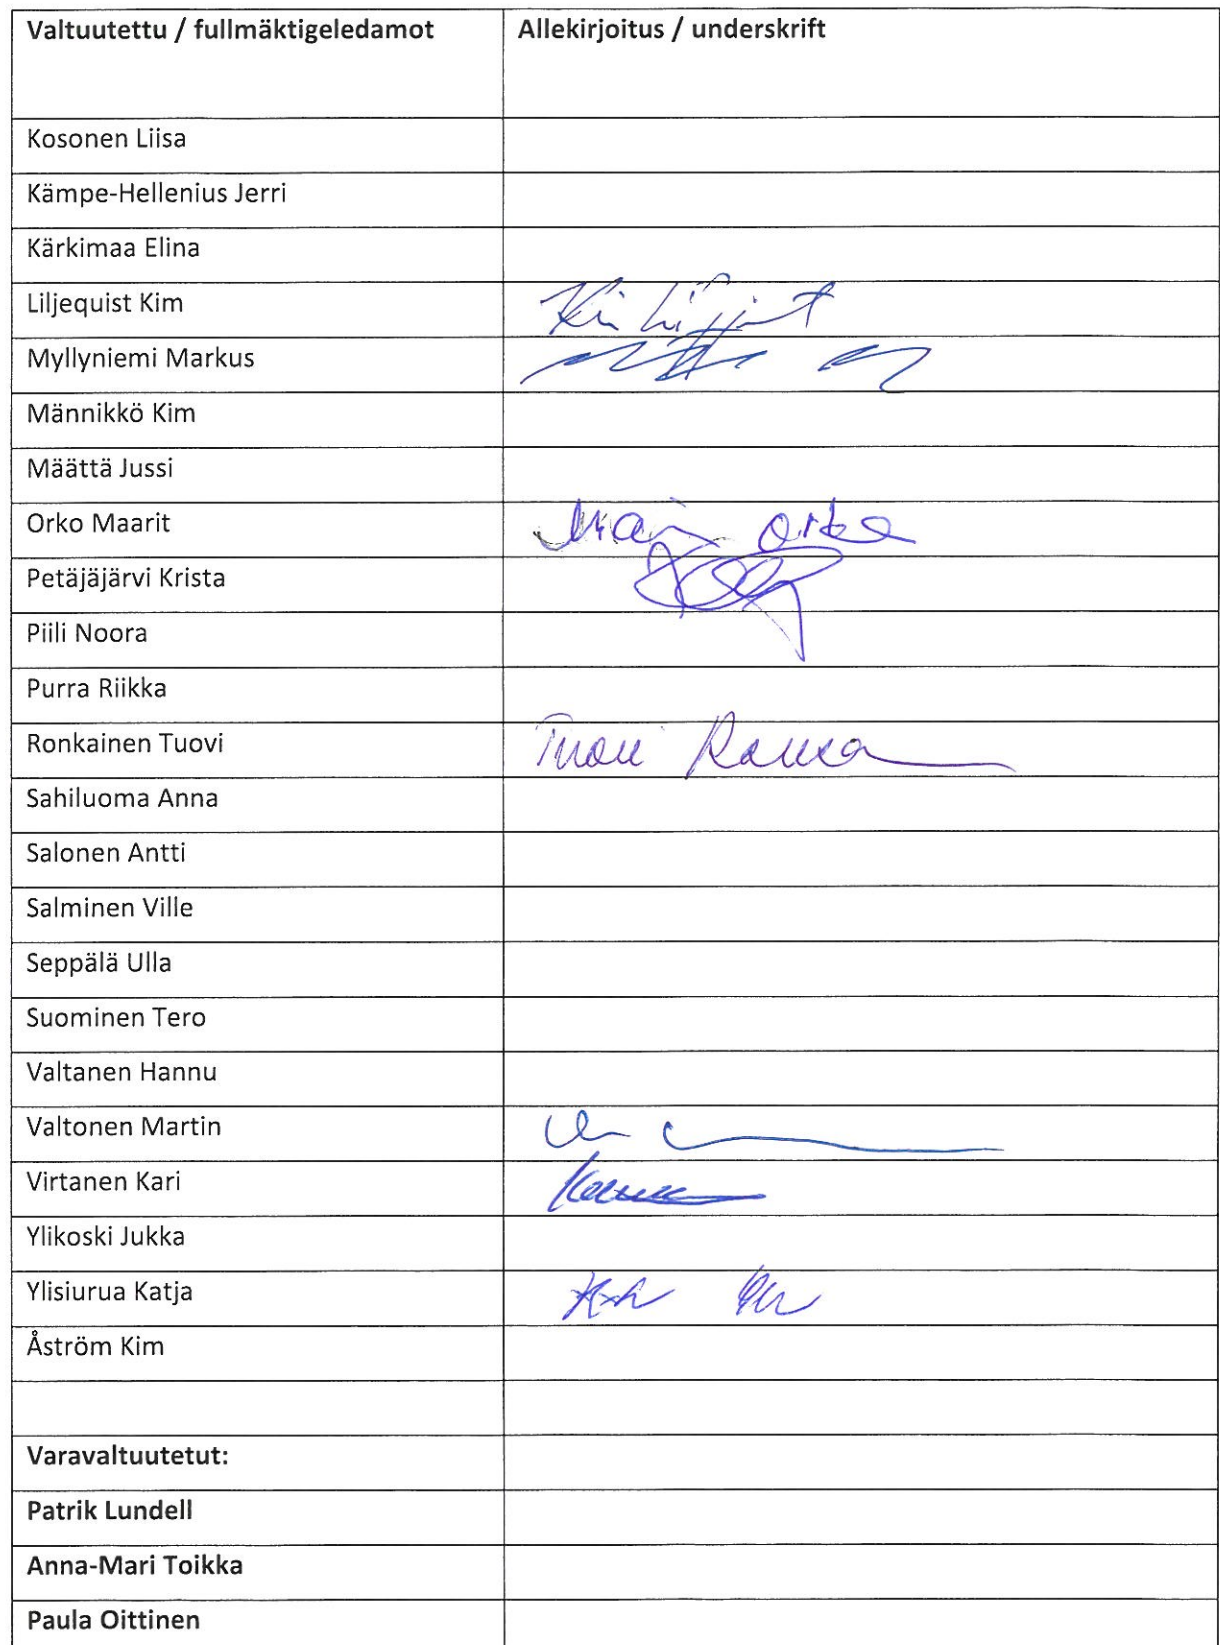 Valtuutettu / fullmäktigeledamot Allekirjoitus / underskrift
Kosonen Liisa
Kämpe-Hellenius Jerri
Kärkimaa Elina
Liljequist Kim
Myllyniemi Markus
Männikkö Kim
Määttä Jussi
Orko Maarit
Petäjäjärvi Krista
Piili Noora
Purra Riikka
Ronkainen Tuovi
Sahiluoma Anna
Salonen Antti
Salminen Ville
Seppälä Ulla
Suominen Tero
Valtanen Hannu
Valtonen Martin
Virtanen Kari
Ylikoski Jukka
Ylisiurua Katja
Åström Kim
Varavaltuutetut:
Patrik Lundell
Anna-Mari Toikka
Paula Oittinen